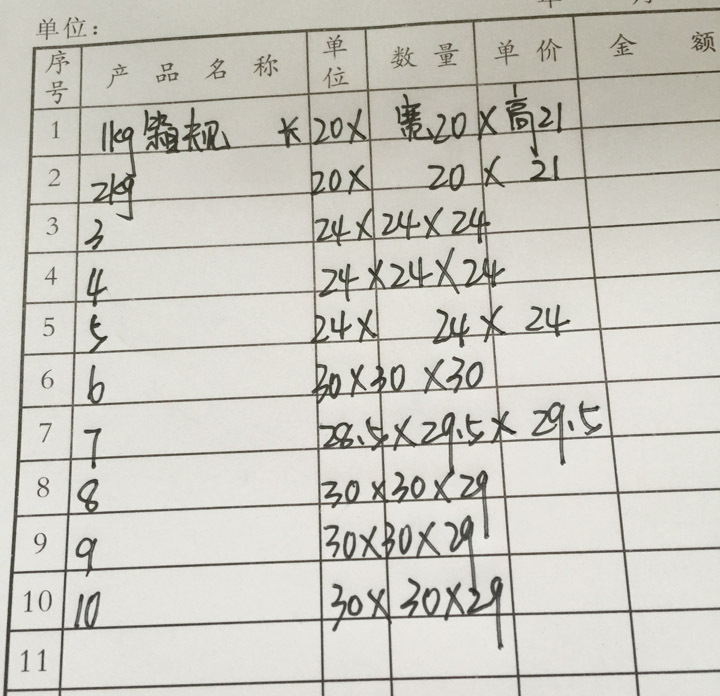 单位：
序号 产品名称 单位 数量 单价 金额
1 1kg箱规 长20× 宽20×高21
2 2kg 20× 20× 21
3 3 24×24×24
4 4 24×24×24
5 5 24× 24× 24
6 6 30×30×30
7 7 28.5×29.5×29.5
8 8 30×30×29
9 9 30×30×29
10 10 30×30×29
11